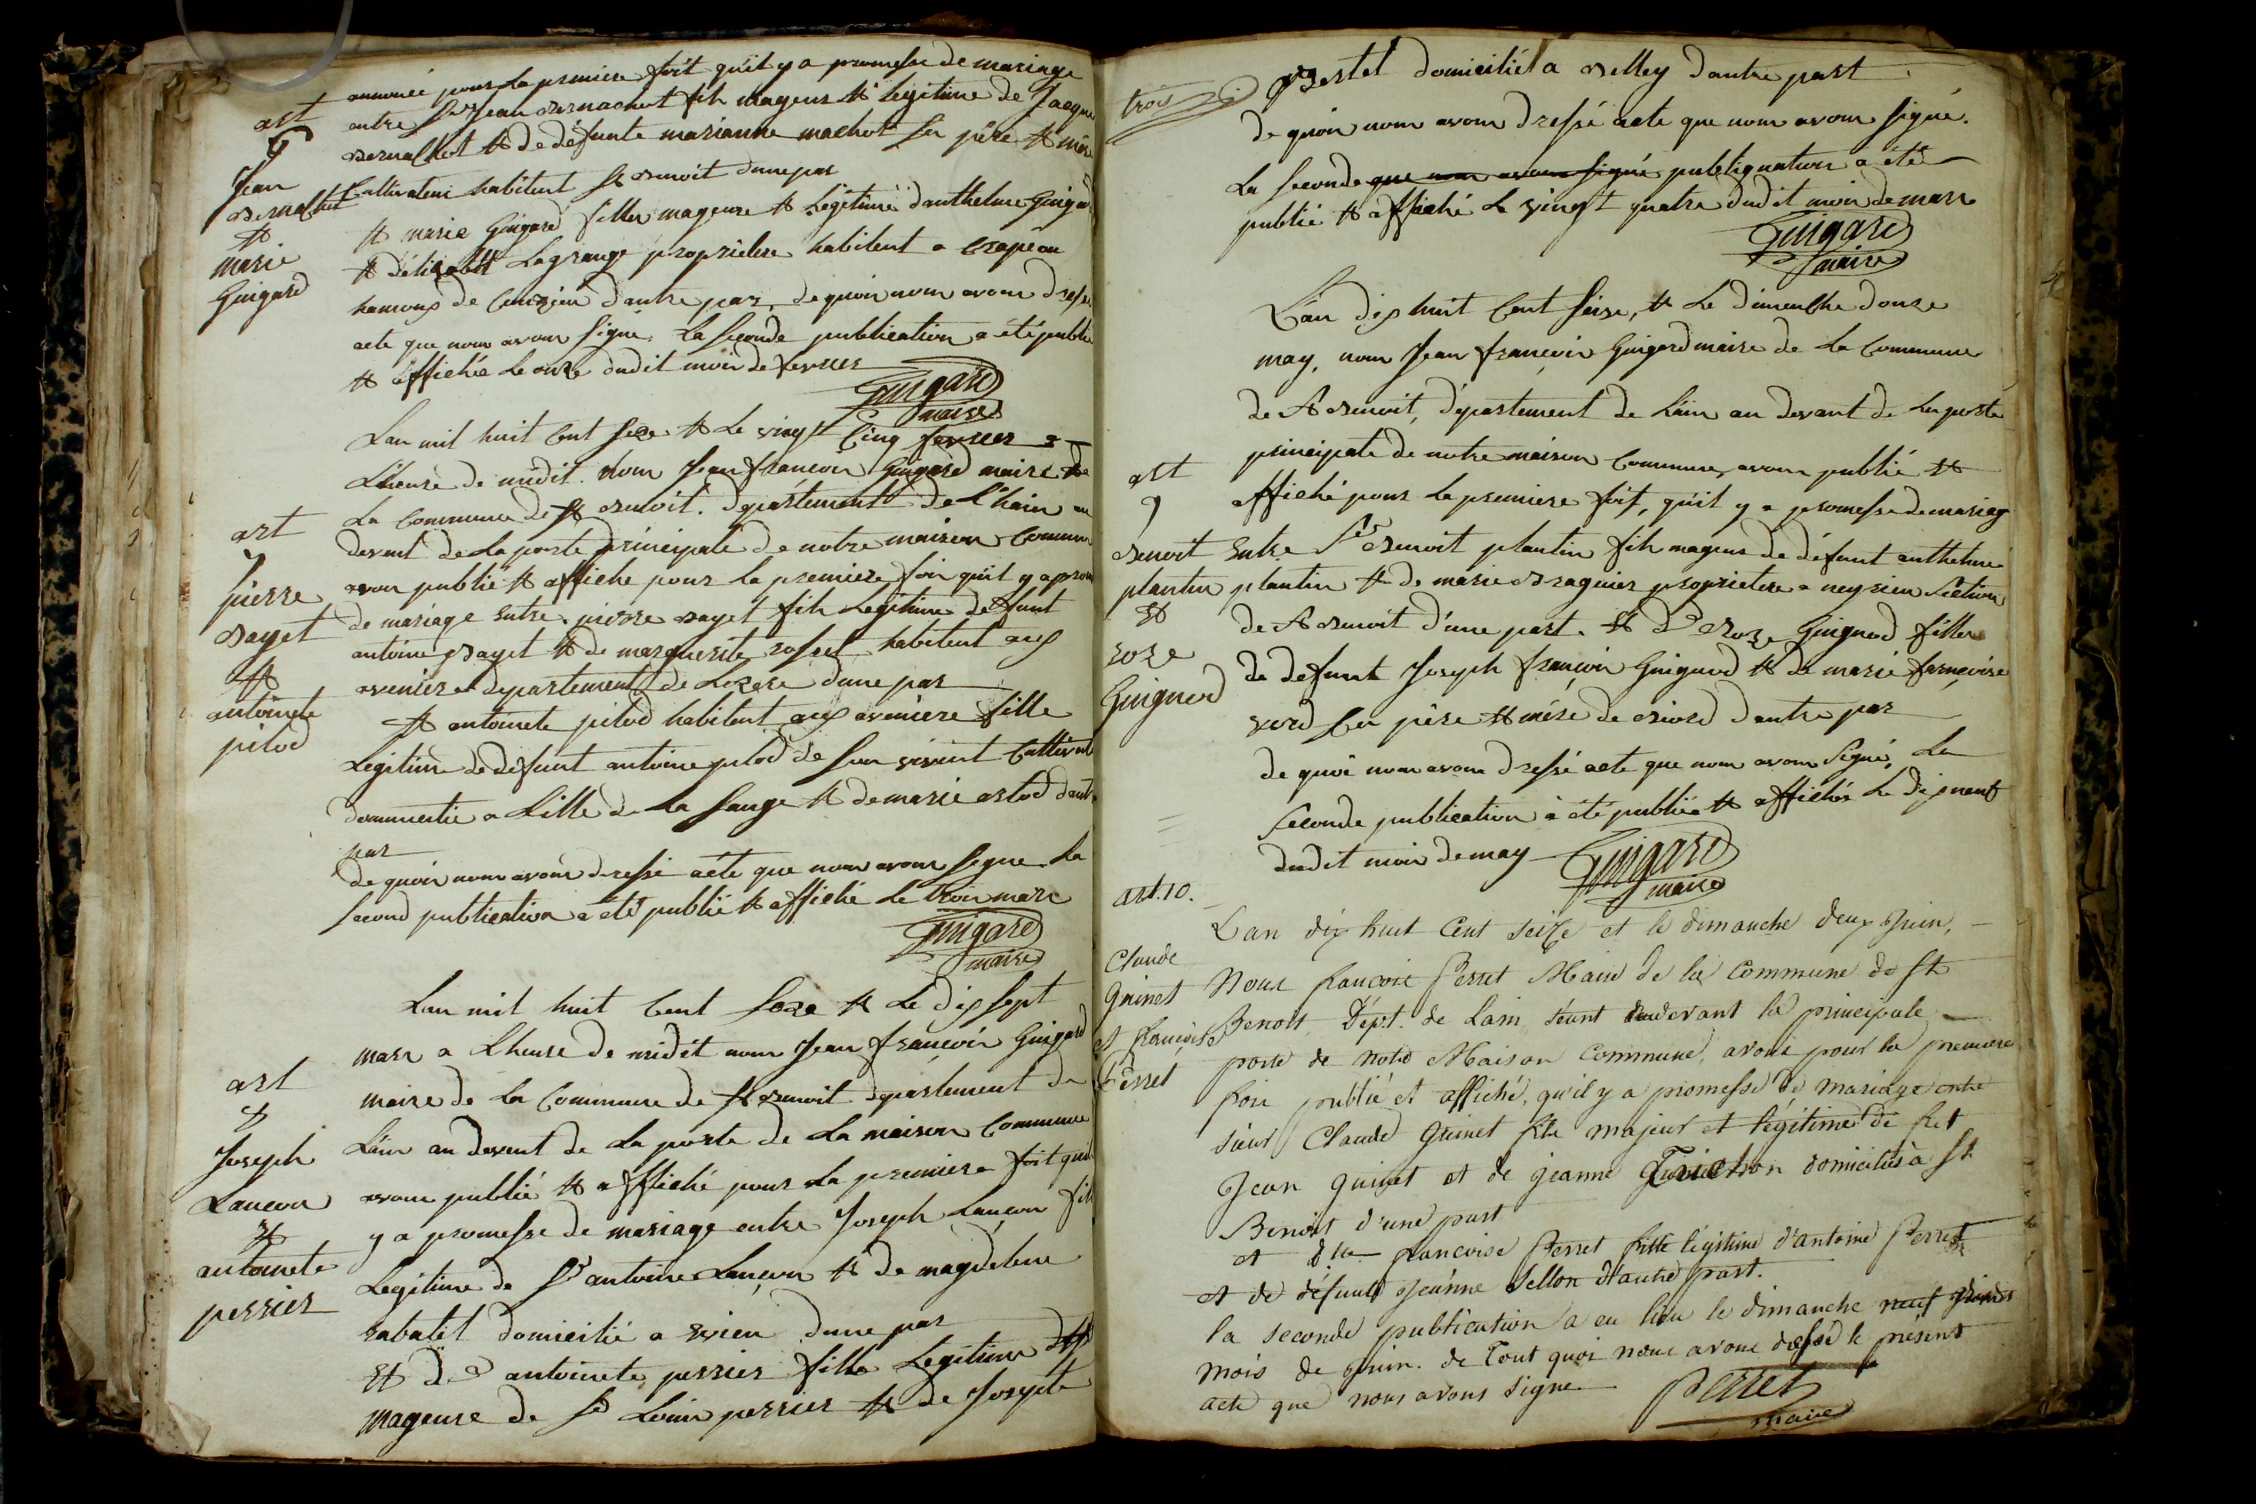 annoncé pour la premiere foit quil y a promesse de mariage
art
entre Sr Jean Bernachot fils mageur & legitime de Jacque
6
Bernachot & de défunte marianne machot Ses père & mère
Jean
Cultivateur habitent St Benoit dune par
Bernachot
& marie Guigard filler mageure & Légitime dantthelme Guigard
&
marie
& délizabett Lagrange proprietere habitent a Crapéou
Guigard
hamaux de dautre par, de quoir nour avour dressé
acte que nour avour Signé. La Seconde publication a été publié
& affichée Le onze dudit moir de fevrier
Guigard
maire
Lan mil huit Cent Seze & Le vingt Cinq fevrier a
Lheure de midit. nour Jean françoir Guigard maire de
La Commune de St Benoit. département de Lhain au
art
devent de La porte principale de notre maison Commune
7
avour publié & affiche pour la premiere foir quil y a prom
pierre
de mariage entre pierre Bayet fils Legitime defunt
Bayet
antoine Bayet & de marguerite rosset habitent aux
&
avenieres departement de Lizere dune par
antoinete
& antoinete pitod habitent aux aveniere fille
pitod
Legitime de défunt antoine pitod de Son vivent Cultivat
dommestie a Lille de La Sauge & de marie dautre
par
de quoir nour avour dressé acte que nour avour Signe La
Second publication a été publié & affiché Le troir marr
Guigard
maire
Lan mil huit Cent Seze & Le dix Sept
marr a Lheure de midit nour Jean françoir Guigard
art
maire de La Commune de St Benoit département de
8
Lain au devent de La porte de La maison Commune
Joseph
avour publié & affiché pour La premiere foit quil
Lançon
y a promesse de mariage entre Joseph Lançon fils
&
antoinete
Legitime de Sr antoine Lançon & de magdelene
perrier
rabatet domicilié a evieu dune par
Et De antoinete perrier fille Legitime &
mageure de Sr Louir perrier & de Josepte
trois
Bertet domicilié a Belley dautre part
de quoir nour avour dressé acte que nour avour signé.
La Seconde que nour avour signé publiquation a été
publié & affiché Le vingt quatre dudit moir de marr
Guigard
maire
L'an dix huit Cent Seize, & Le dimenche douze
may, nour Jean françoir Guigard maire de La Commune
de St Benoit, département de Lain au devant de La porte
principale de notre maison Commune, avour publié &
art
affiché pour La premiere foit, quil y a promesse de mariage
9
Benoit
Entre Sr Benoit plantin fils mageur de défunt anthelme
plantin
plantin & de marie Braguier proprietere a neyrieu Section
&
roze
de St Benoit d'une part. & De Roze Guignod filler
Guignod
de defunt Joseph françoir Guignod & de marie françoise
verd Ser père & mére de Briord dautre par
de quoi nour avour dressé acte que nour avour Signé, La
Seconde publication à été publiée & affichée Le dix neuf
dudit moir de may
Guigard
maire
art. 10.
L'an dix huit Cent seize et le dimanche deux Juin,
Claude
Guinet
Nous françois Perret Maire de la Commune de St
et françoise
Benoit, Dépt. de Lain, séant au devant la principale
Perret
porte de notre Maison Commune, avons pour la premiere
fois publié et affiché, qu'il y a promesse de mariage entre
sieur Claude Guinet fils majeur et légitime de feu
Jean Guinet et de Jeanne domiciliés à St
Benoît d'une part
et Dlle françoise Perret fille légitime d'antoine Perret
et de défunte Jeanne Sellon d'autre part.
la seconde publication a eu lieu le dimanche neuf
mois de Juin. de tout quoi nous avons dressé le présent
acte que nous avons signe
Perret
maire